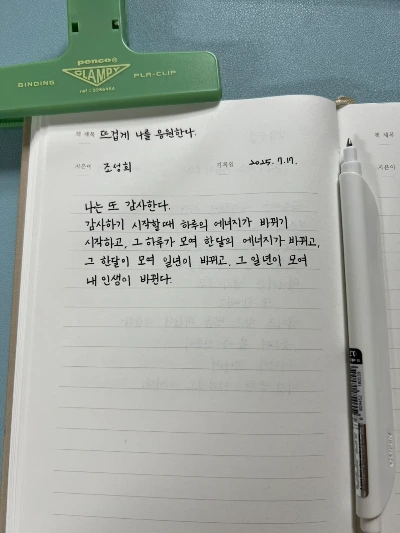 penco®
CLAMPY
BINDING
PLA-CLIP
책 제목 뜨겁게 나를 응원한다.
지은이 조성희 기록일 2025. 7. 17.
나는 또 감사한다.
감사하기 시작할 때 하루의 에너지가 바뀌기
시작하고, 그 하루가 모여 한달의 에너지가 바뀌고,
그 한달이 모여 일년이 바뀌고. 그 일년이 모여
내 인생이 바뀐다.
책 제목
지은이